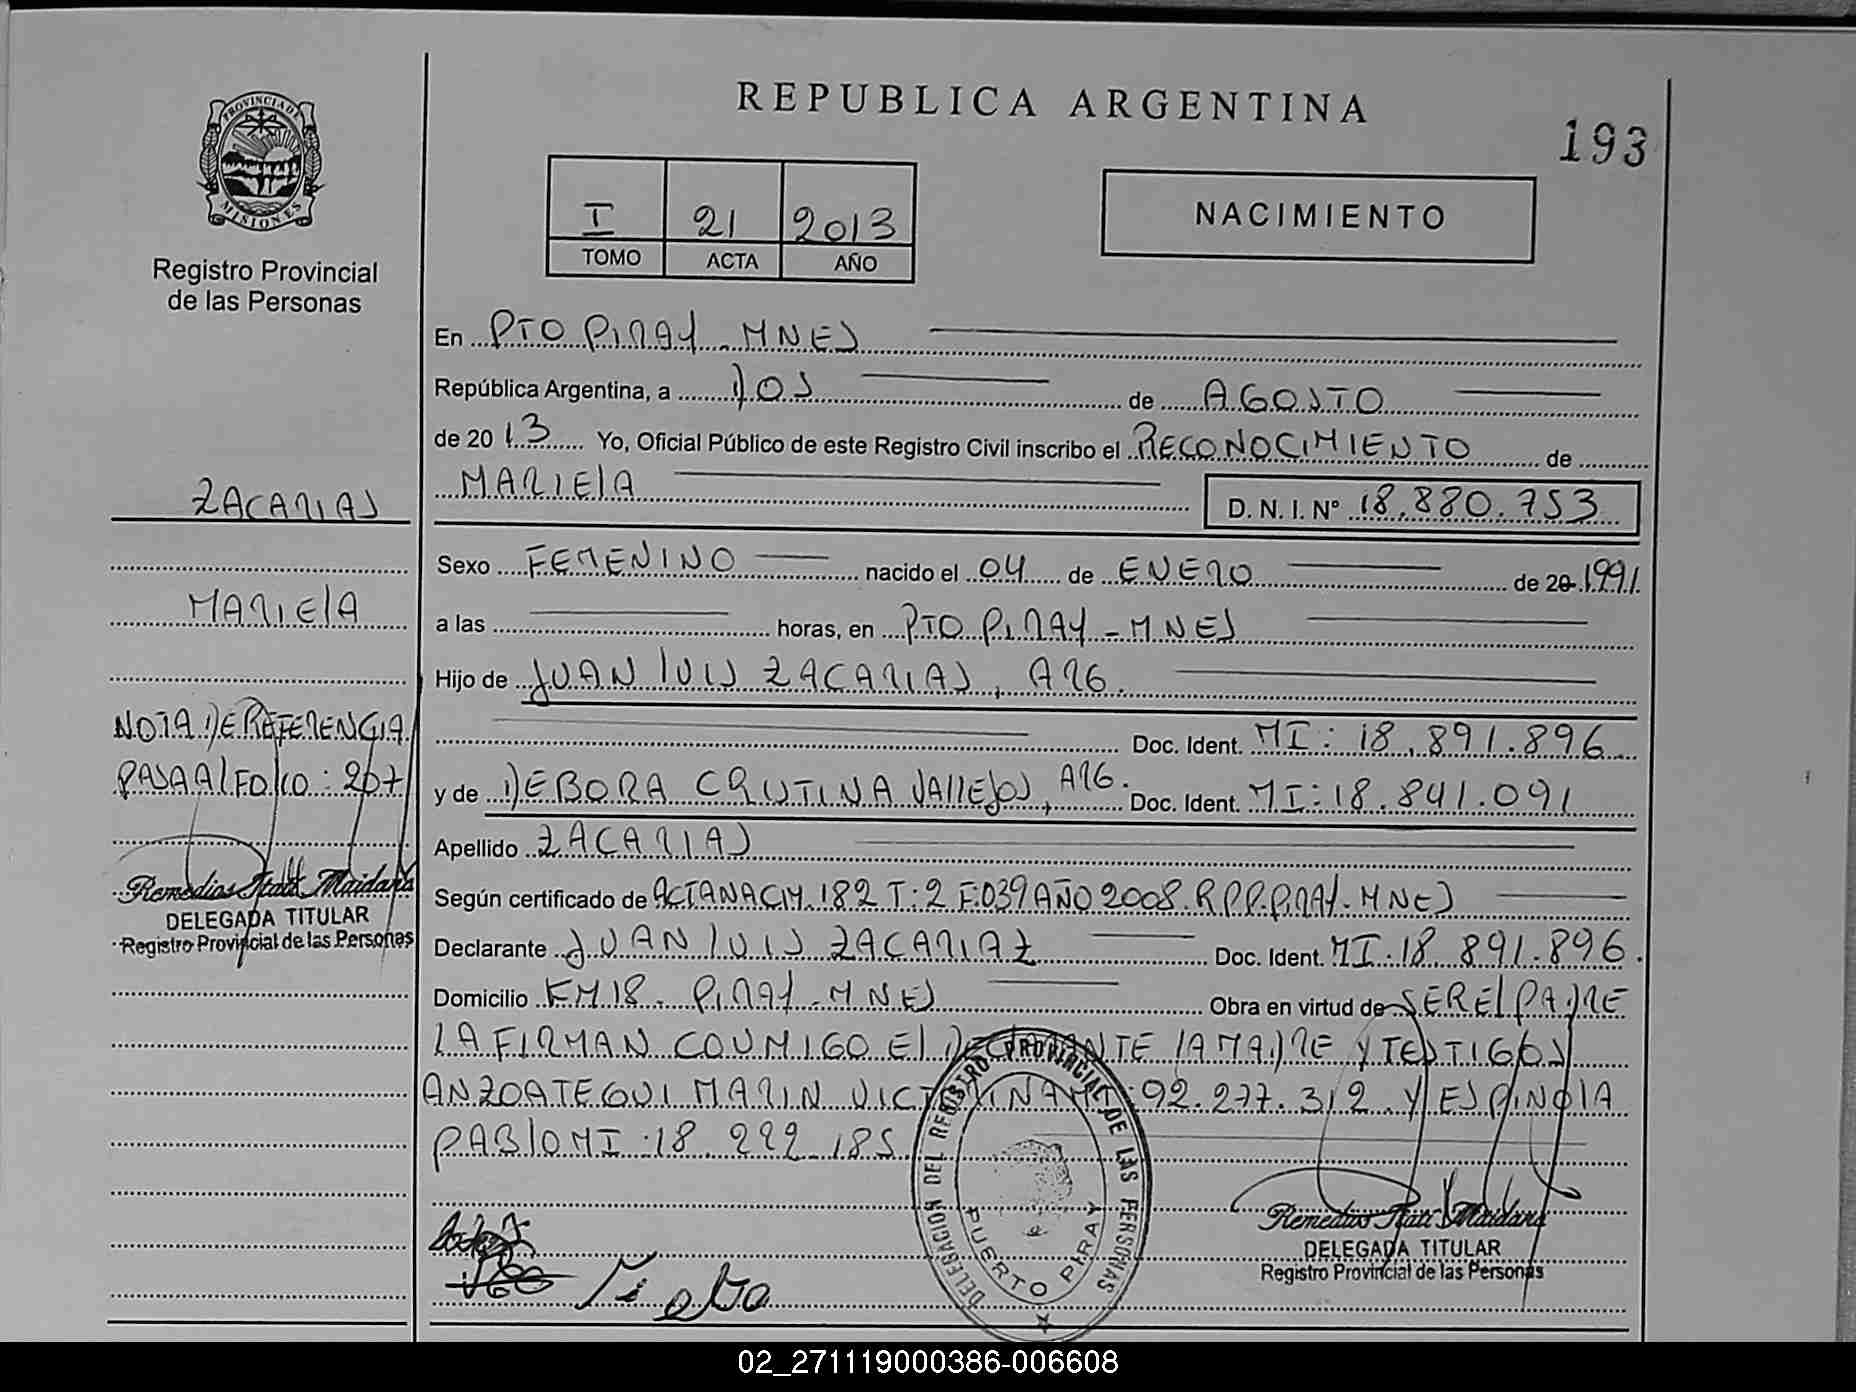 REPUBLICA ARGENTINA
193
PROVINCIA DE MISIONES
Registro Provincial
de las Personas
I 21 2013
TOMO ACTA AÑO
NACIMIENTO
En PTO PIRAY - MNES
República Argentina, a DOS de AGOSTO
de 2013 Yo, Oficial Público de este Registro Civil inscribo el RECONOCIMIENTO de
MARIELA D. N. I. Nº 18.880.753
Sexo FEMENINO nacido el 04 de ENERO de 20 1991
a las horas, en PTO PIRAY - MNES
Hijo de JUAN LUIS ZACARIAS, ARG.
Doc. Ident. MI: 18.891.896
y de DEBORA CRISTINA VALLEJOS, ARG. Doc. Ident. MI: 18.841.091
Apellido ZACARIAS
Según certificado de ACTA NACIM. 182 T: 2 F: 039 AÑO 2008. R.P.P. PIRAY - MNES
Declarante JUAN LUIS ZACARIAZ Doc. Ident. MI. 18.891.896
Domicilio KM 18. PIRAY - MNES Obra en virtud de SER EL PADRE
LA FIRMAN CONMIGO EL DECLARANTE LA MADRE Y TESTIGOS
ANZOATEGUI MARIN VICTORINA MI: 92.277.312 Y ESPINOLA
PABLO MI: 18.222.185
ZACARIAS
MARIELA
NOTA DE REFERENCIA
PASA AL FOLIO: 207
Remedios Itatí Maidana
DELEGADA TITULAR
Registro Provincial de las Personas
DELEGACION DEL REGISTRO PROVINCIAL DE LAS PERSONAS
PUERTO PIRAY
Remedios Itatí Maidana
DELEGADA TITULAR
Registro Provincial de las Personas
02_271119000386-006608